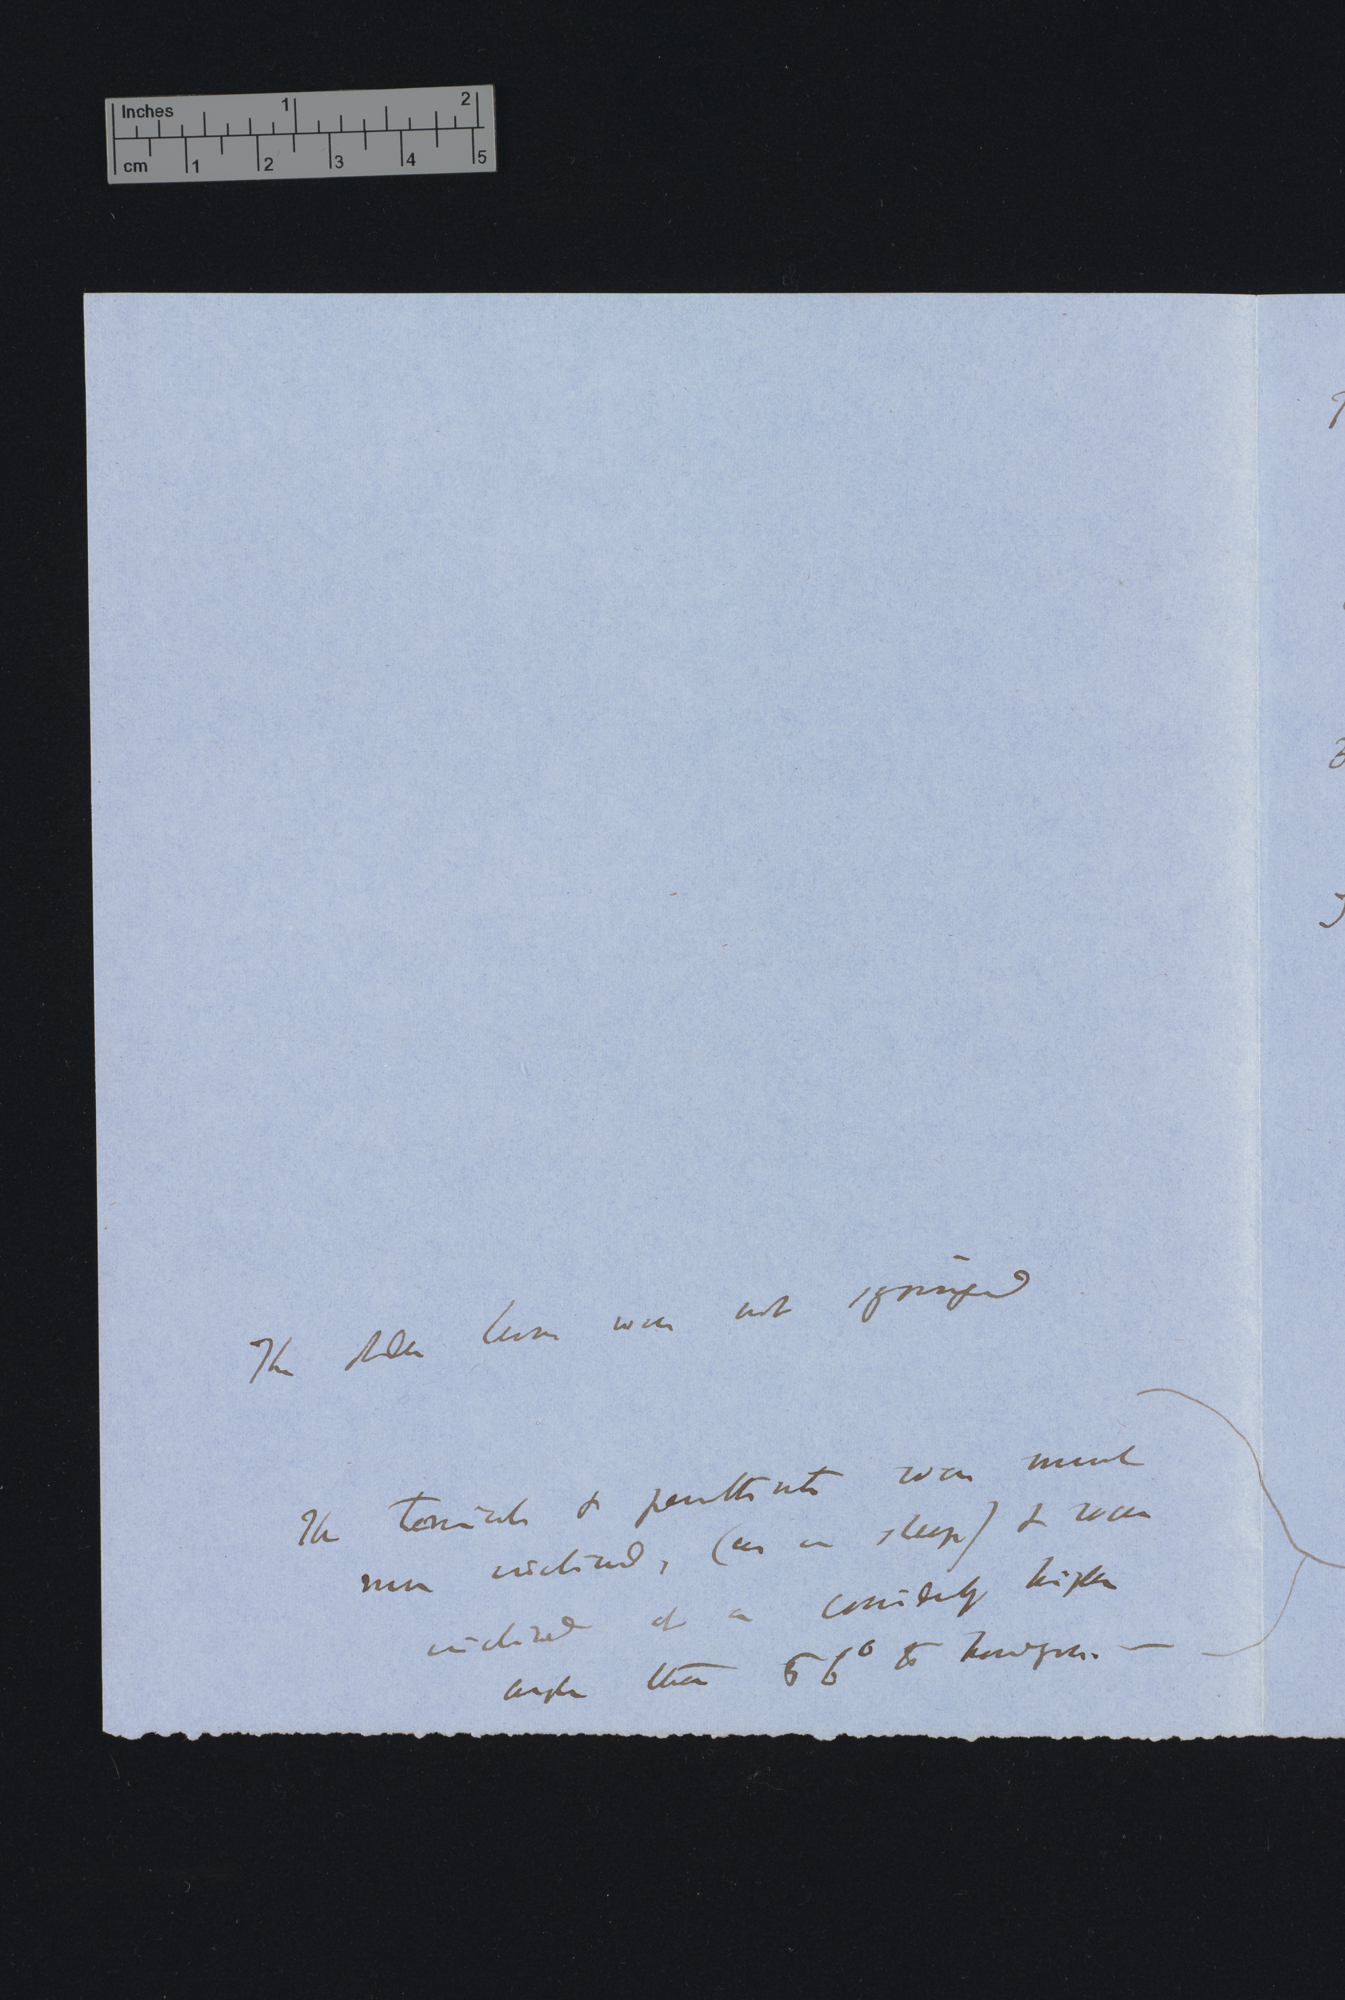 Inches 1 2
cm 1 2 3 4 5
The older leaves were not syringed
The terminals & penultimate were much
more inclined, (as in sleep) & were
inclined at a considerably higher
angle than 66° to horizon. —